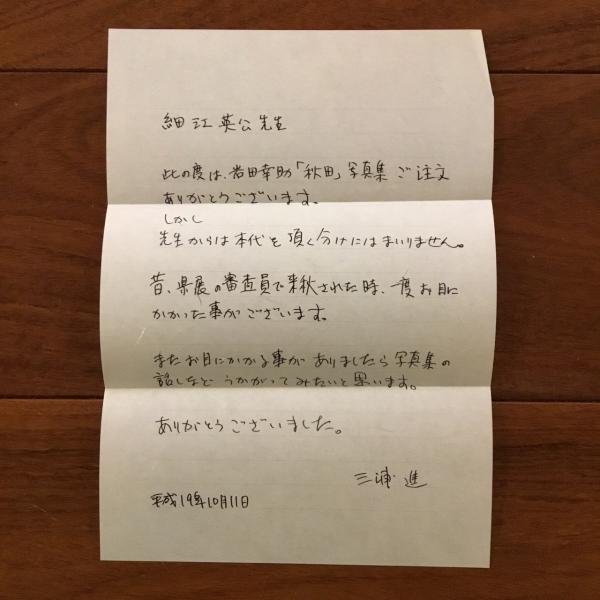 細江英公先生
此の度は、岩田幸助「秋田」写真集 ご注文
ありがとうございます。
しかし
先生からは本代を頂く分けにはまいりません。
昔、県展の審査員で来秋された時、一度お目に
かかった事がございます。
またお目にかかる事がありましたら写真集の
話しなど うかがってみたいと思います。
ありがとうございました。
三浦 進
平成19年10月11日